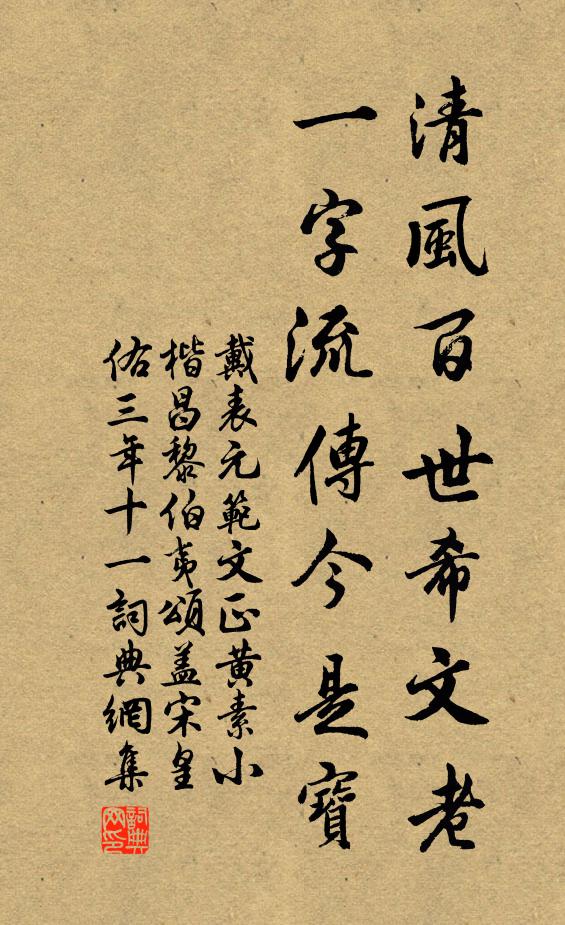 清風百世希文老
一字流傳今是寶
戴表元範文正黄素小
楷昌黎伯夷頌蓋宋皇
佑三年十一詞典網集
詞典网印